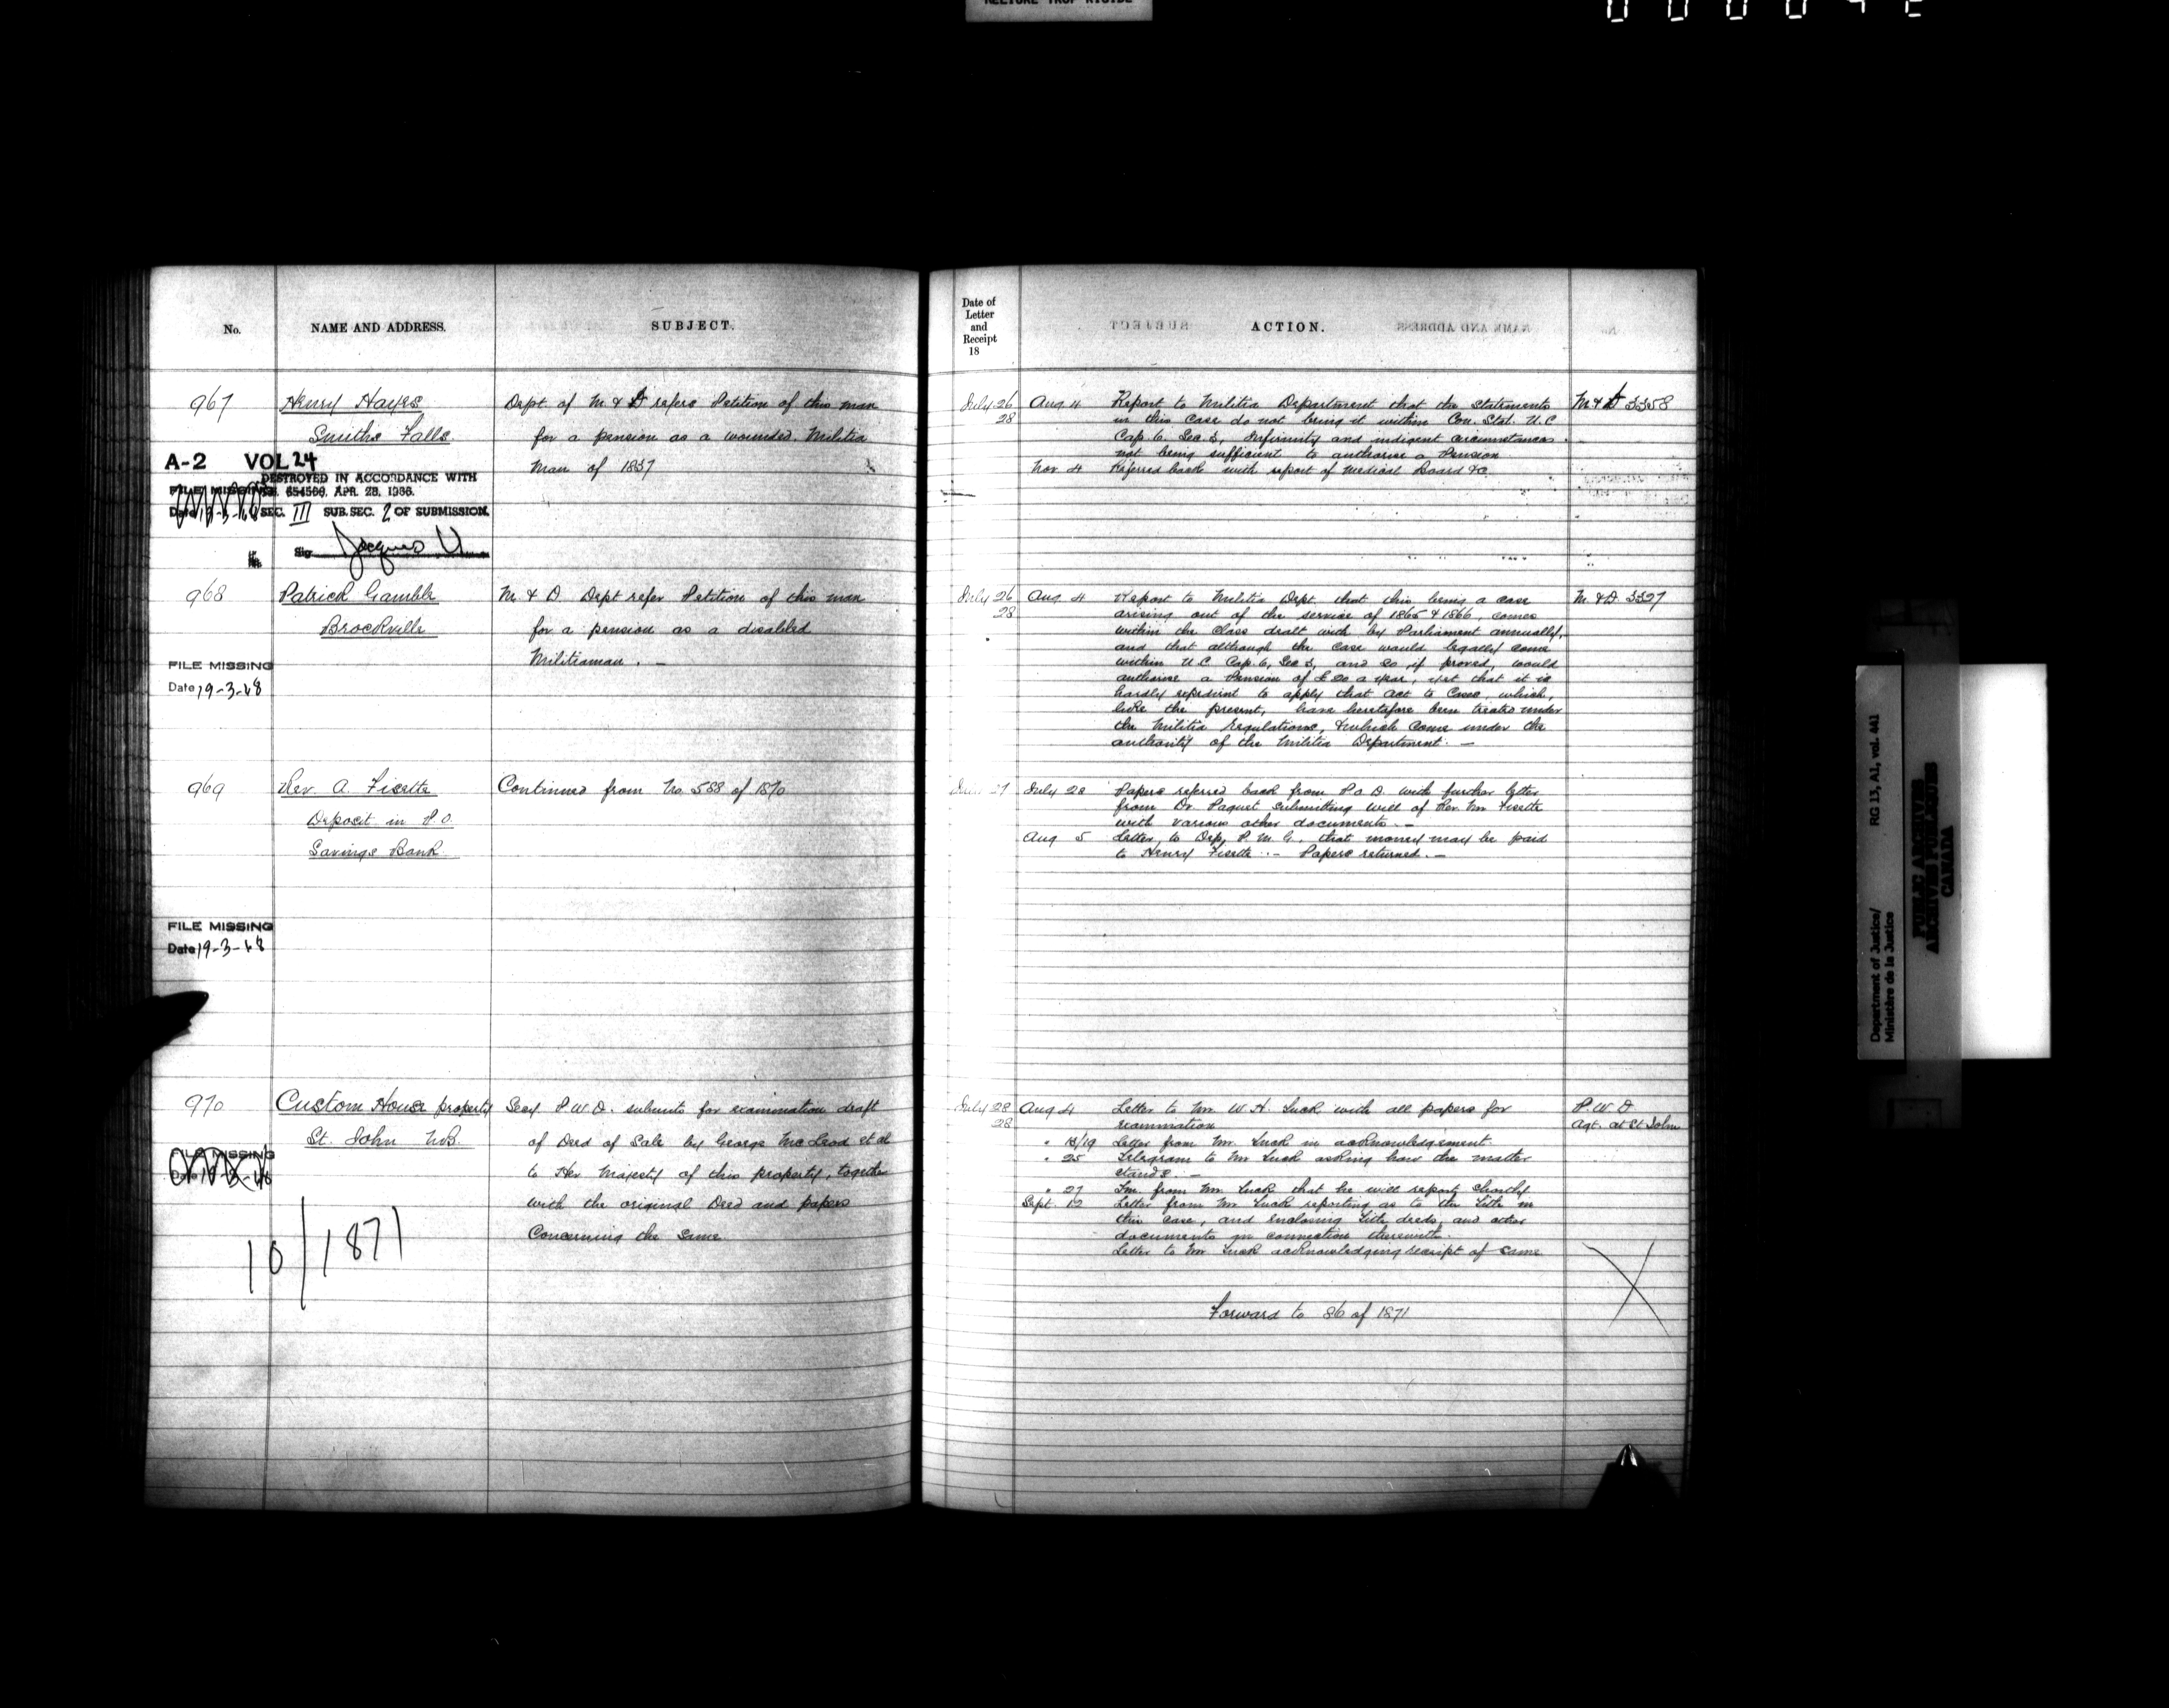 RELIURE TROP RIGIDE
No.
NAME AND ADDRESS.
SUBJECT.
967
Henry Hayes
Smiths Falls
Dept. of M. & D refers Petition of this man
for a pension as a wounded Militia
man of 1837
A-2 VOL 24
DESTROYED IN ACCORDANCE WITH
FILE MISSING
654560, APR. 28, 1936.
SEC. III SUB. SEC. 2 OF SUBMISSION.
Sig
968
Patrick Gamble
Brockville
M. & D Dept refer Petition of this man
for a pension as a disabled
Militiaman. —
FILE MISSING
Date 19-3-48
969
Rev. A. Fisette
Deposit in P.O.
Savings Bank
Continued from No. 588 of 1870
FILE MISSING
Date 19-3-48
970
Custom House property
St. John N.B.
Secy P.W.D. submits for examination draft
of Deed of Sale by George McLeod et al
to Her Majesty of this property, together
with the original Deed and papers
Concerning the Same
FILE MISSING
10/1871
Date of
Letter
and
Receipt
18
ACTION.
July 26
28
Aug 4 Report to Militia Department that the statements
in this case do not bring it within Con. Stat. U.C
Cap. 6. Sec. 3, Infirmity and indigent circumstances
not being sufficient to authorise a Pension
Nov 4 Referred back with report of Medical Board &c.
M & D 3358
July 26
28
Aug 4 Report to Militia Dept. that this being a case
arising out of the service of 1865 & 1866, comes
within the class dealt with by Parliament annually,
and that although the case would legally come
within U.C. Cap. 6, Sec 3, and so if proved, would
authorise a Pension of £20 a year, yet that it is
hardly expedient to apply that act to Cases, which,
like the present, have heretofore been treated under
the Militia regulations, & which come under the
authority of the Militia Department. —
M. & D. 3327
27
July 28 Papers referred back from P.O.D. with further letter
from Dr. Paquet submitting will of Rev. Mr Fisette
with various other documents. —
Aug 5 Letter to Dep. P.M.G. that money may be paid
to Henry Fisette. — Papers returned. —
July 28
28
Aug 4 Letter to Mr W. H. Tuck with all papers for
examination
" 18/19 Letter from Mr. Tuck in acknowledgement
" 25 Telegram to Mr Tuck asking how the matter
stands. —
" 27 Tm. from Mr. Tuck that he will report shortly
Sept. 12 Letter from Mr Tuck reporting as to the title in
this case, and enclosing title deeds, and other
documents in connection therewith.
Letter to Mr Tuck acknowledging receipt of same
P.W.D
Agt. at St John
Forward to 86 of 1871
Department of Justice/
Ministère de la Justice
RG 13, A1, vol. 441
PUBLIC ARCHIVES
ARCHIVES PUBLIQUES
CANADA